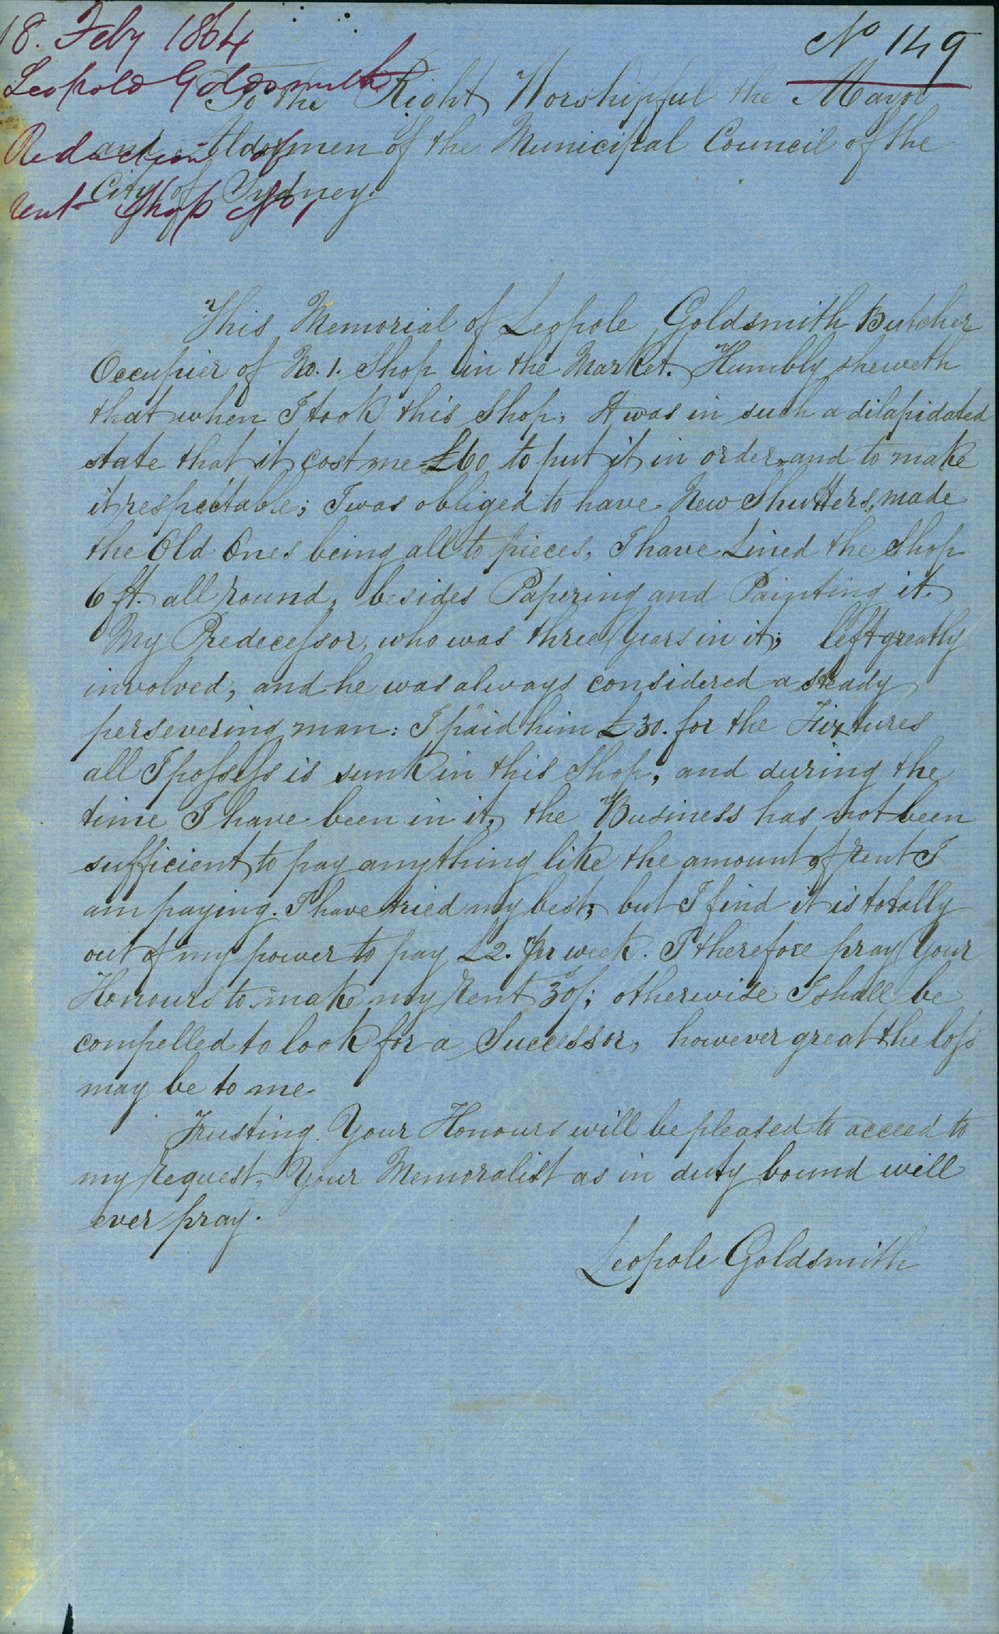 18. Feby 1864
Leopold Goldsmith
Reduction of
rent Shop No 1
No 149
To the Right Worshipful the Mayor
and Aldermen of the Municipal Council of the
City of Sydney.
This Memorial of Leopole Goldsmith Butcher
Occupier of No. 1. Shop in the Market. Humbly sheweth
that when I took this Shop, It was in such a dilapidated
state that it cost me £60 to put it in order and to make
it respectable; I was obliged to have New Shutters, made
the Old Ones being all to pieces, I have Lined the Shop
6 ft. all round, besides Papering and Painting it.
My Predecessor, who was three Years in it; left greatly
involved, and he was always considered a steady
persevering man: I paid him £30. for the Fixtures
all I possess is sunk in this Shop, and during the
time I have been in it, the Business has not been
sufficient to pay anything like the amount of rent I
am paying. I have tried my best; but I find it is totally
out of my power to pay £2. Pr week. I therefore pray Your
Honours to make my rent 30/; otherwise I shall be
compelled to look for a Successor, however great the loss
may be to me.
Trusting Your Honours will be pleased to acceed to
my request, Your Memoralist as in duty bound will
ever pray.
Leopole Goldsmith